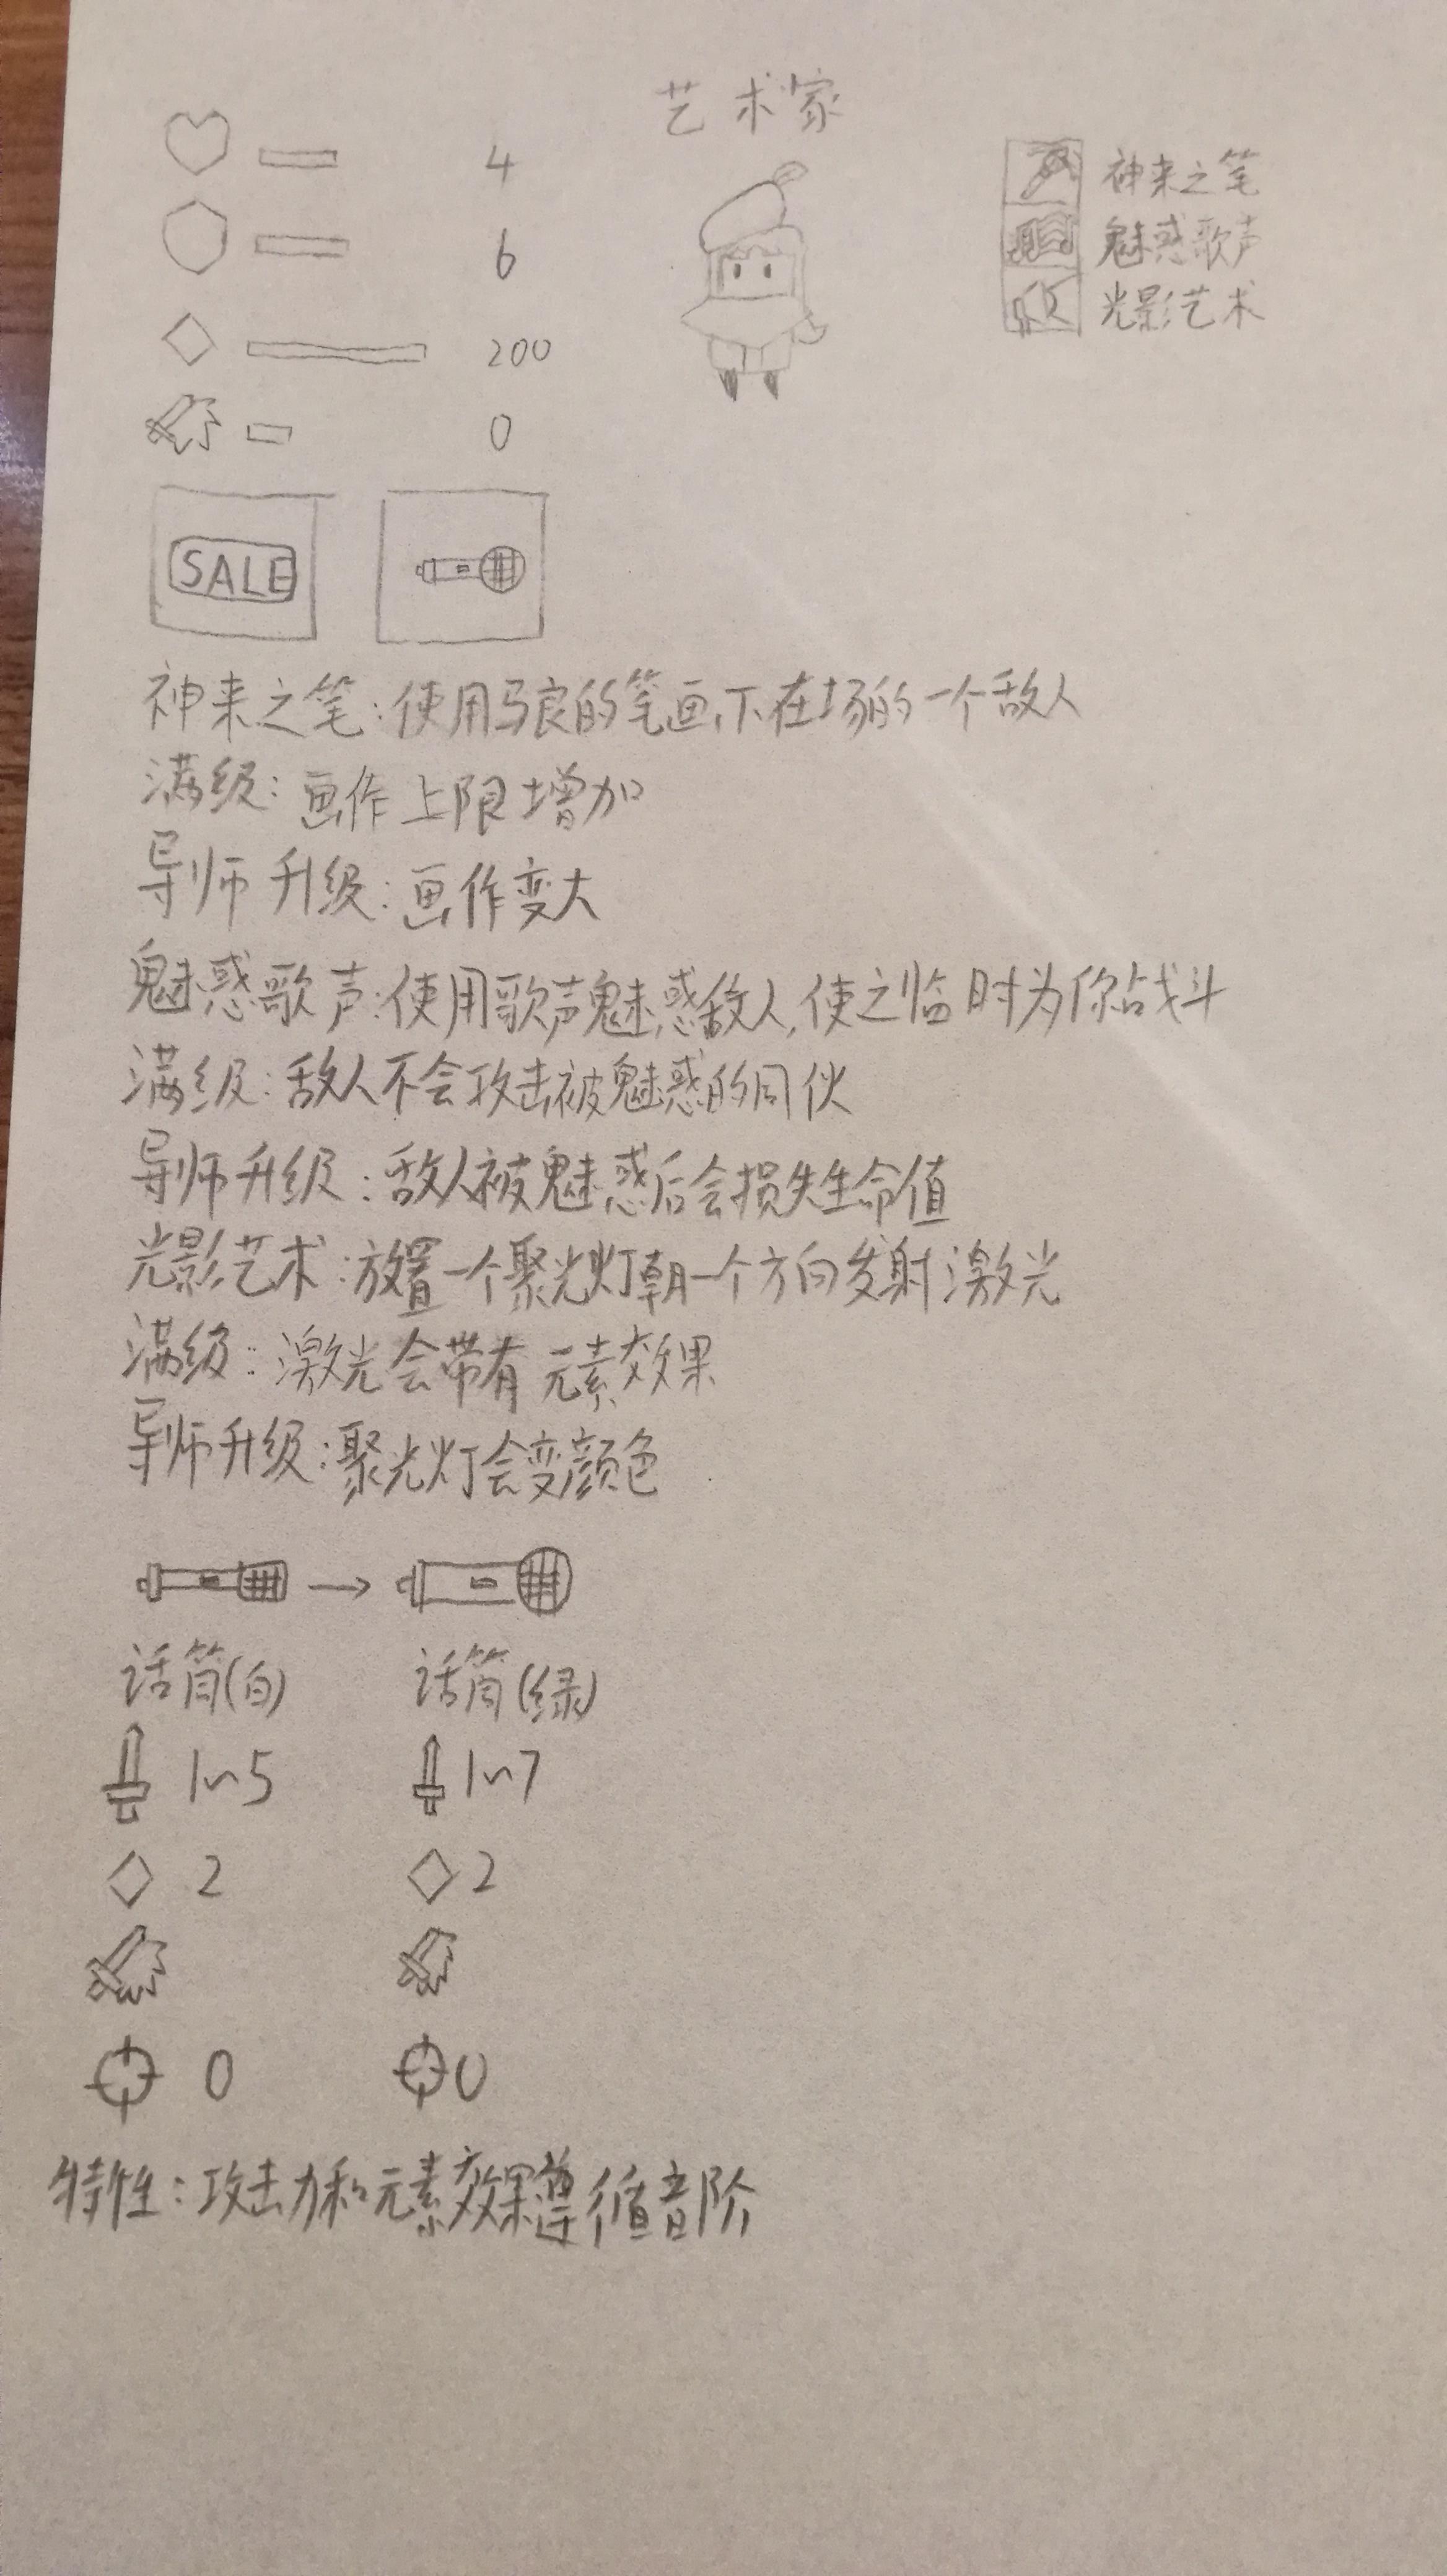 艺术家
4
6
200
0
神来之笔
魅惑歌声
光影艺术
SALE
神来之笔:使用马良的笔画下在场的一个敌人
满级:画作上限增加
导师升级:画作变大
魅惑歌声:使用歌声魅惑敌人,使之临时为你战斗
满级:敌人不会攻击被魅惑的同伙
导师升级:敌人被魅惑后会损失生命值
光影艺术:放置一个聚光灯朝一个方向发射激光
满级:激光会带有元素效果
导师升级:聚光灯会变颜色
话筒(白) 话筒(绿)
1~5 1~7
2 2
0 0
特性:攻击力和元素效果遵循音阶